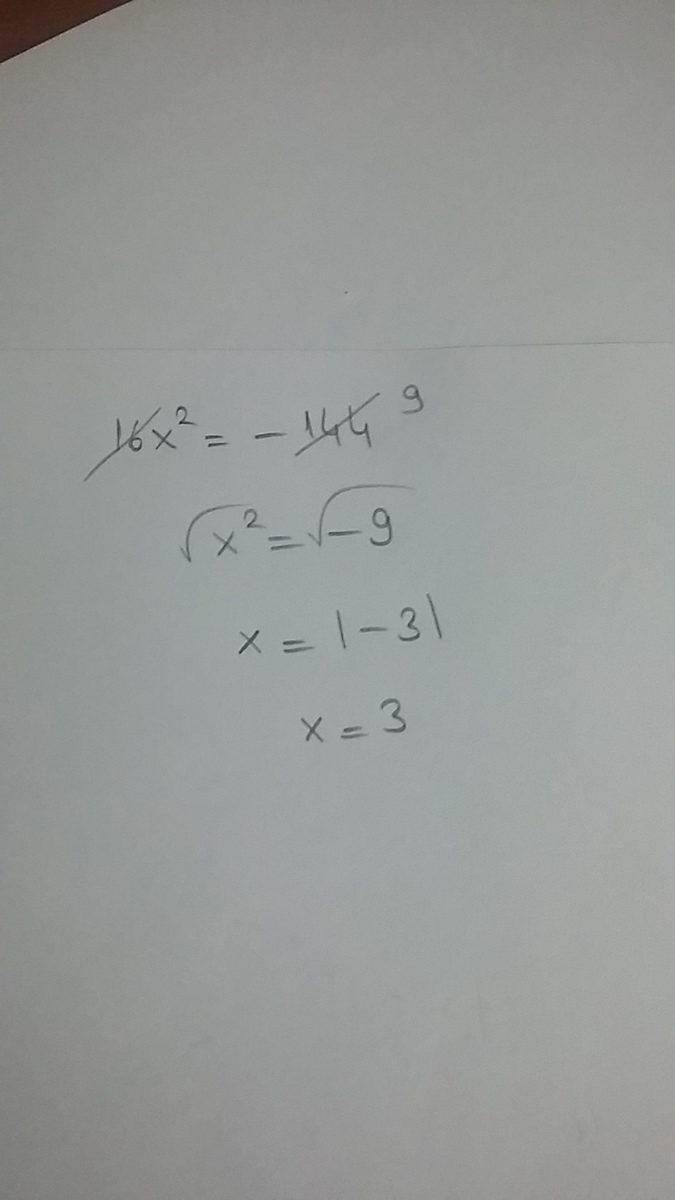 16x² = -144 9
√x² = √-9
x = |-3|
x = 3